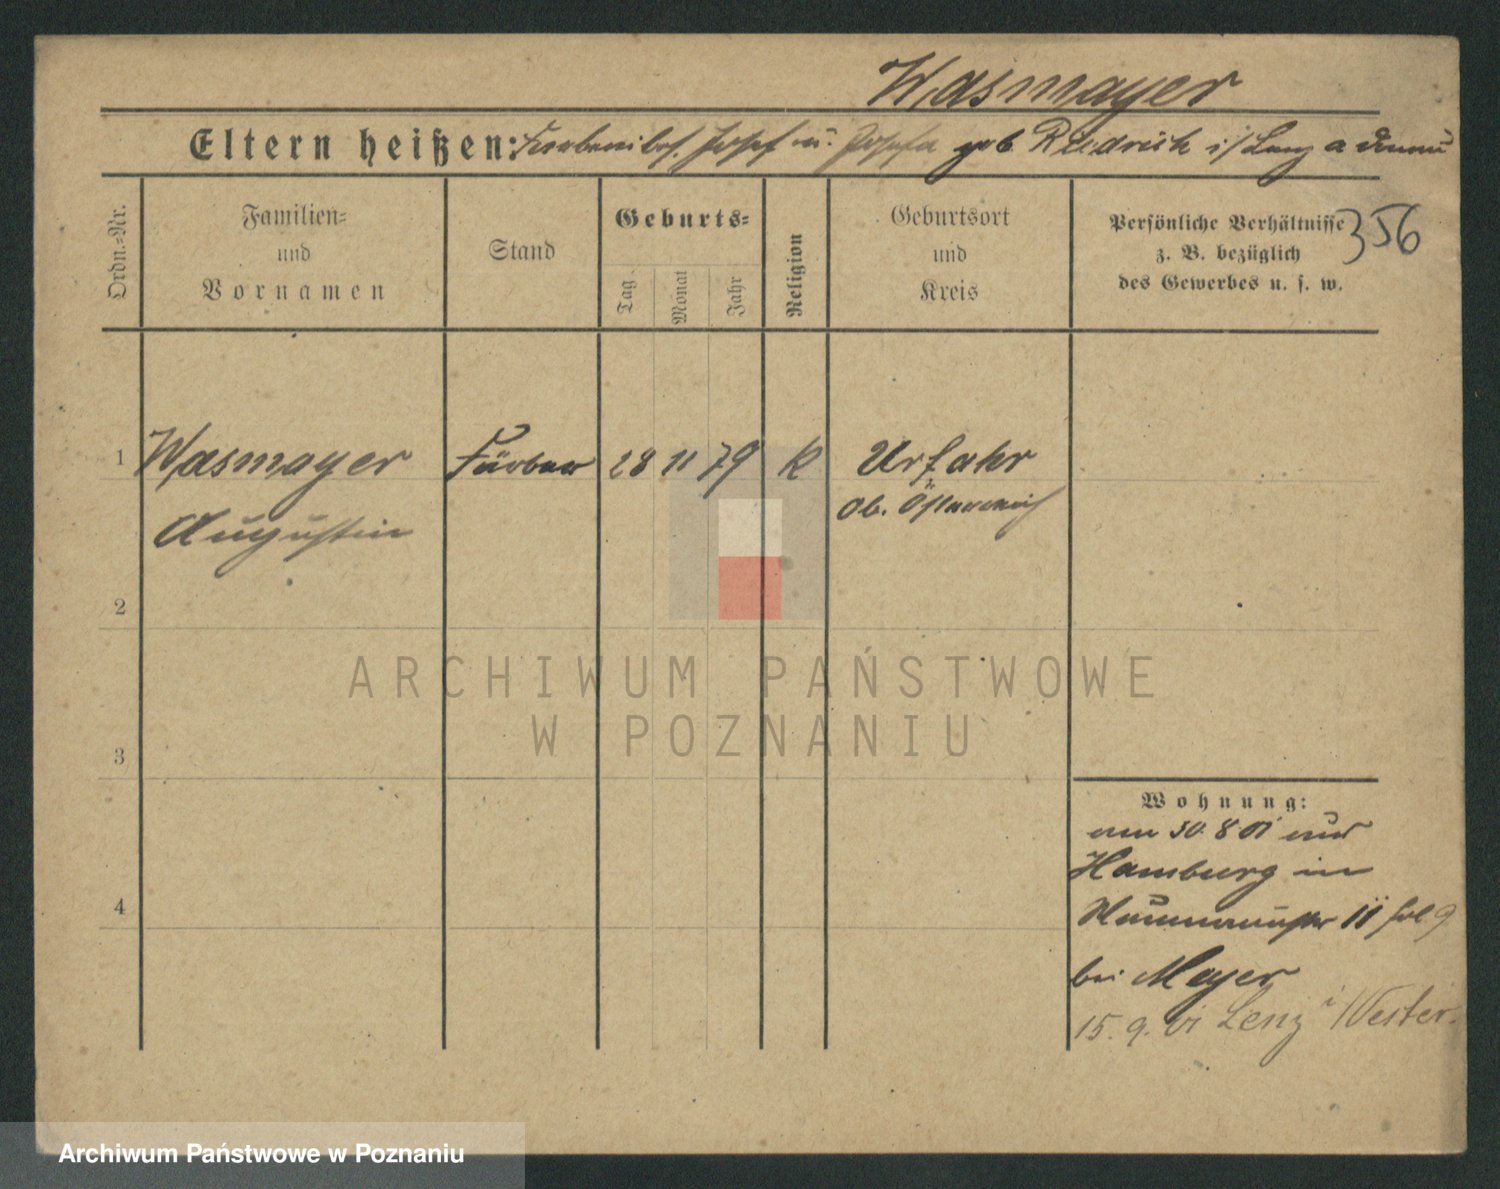 Wasmayer
Eltern heißen: Josef u. Josefa geb Reidrich i/ Lenz a Donau
Ordn.-Nr.
Familien-
und
Vornamen
Stand
Geburts-
Tag.
Monat
Jahr
Religion
Geburtsort
und
Kreis
Persönliche Verhältnisse
z. B. bezüglich
des Gewerbes u. s. w.
356
1 Wasmayer Färber 28 11 79 K Urfahr
Augustin
Ob. Österreich
2
3
4
Wohnung:
am 30. 8 01 aus
Hamburg in
11 9
bei Mayer
15. 9. 01 Lenz i/ Oester.
ARCHIWUM PAŃSTWOWE
W POZNANIU
Archiwum Państwowe w Poznaniu